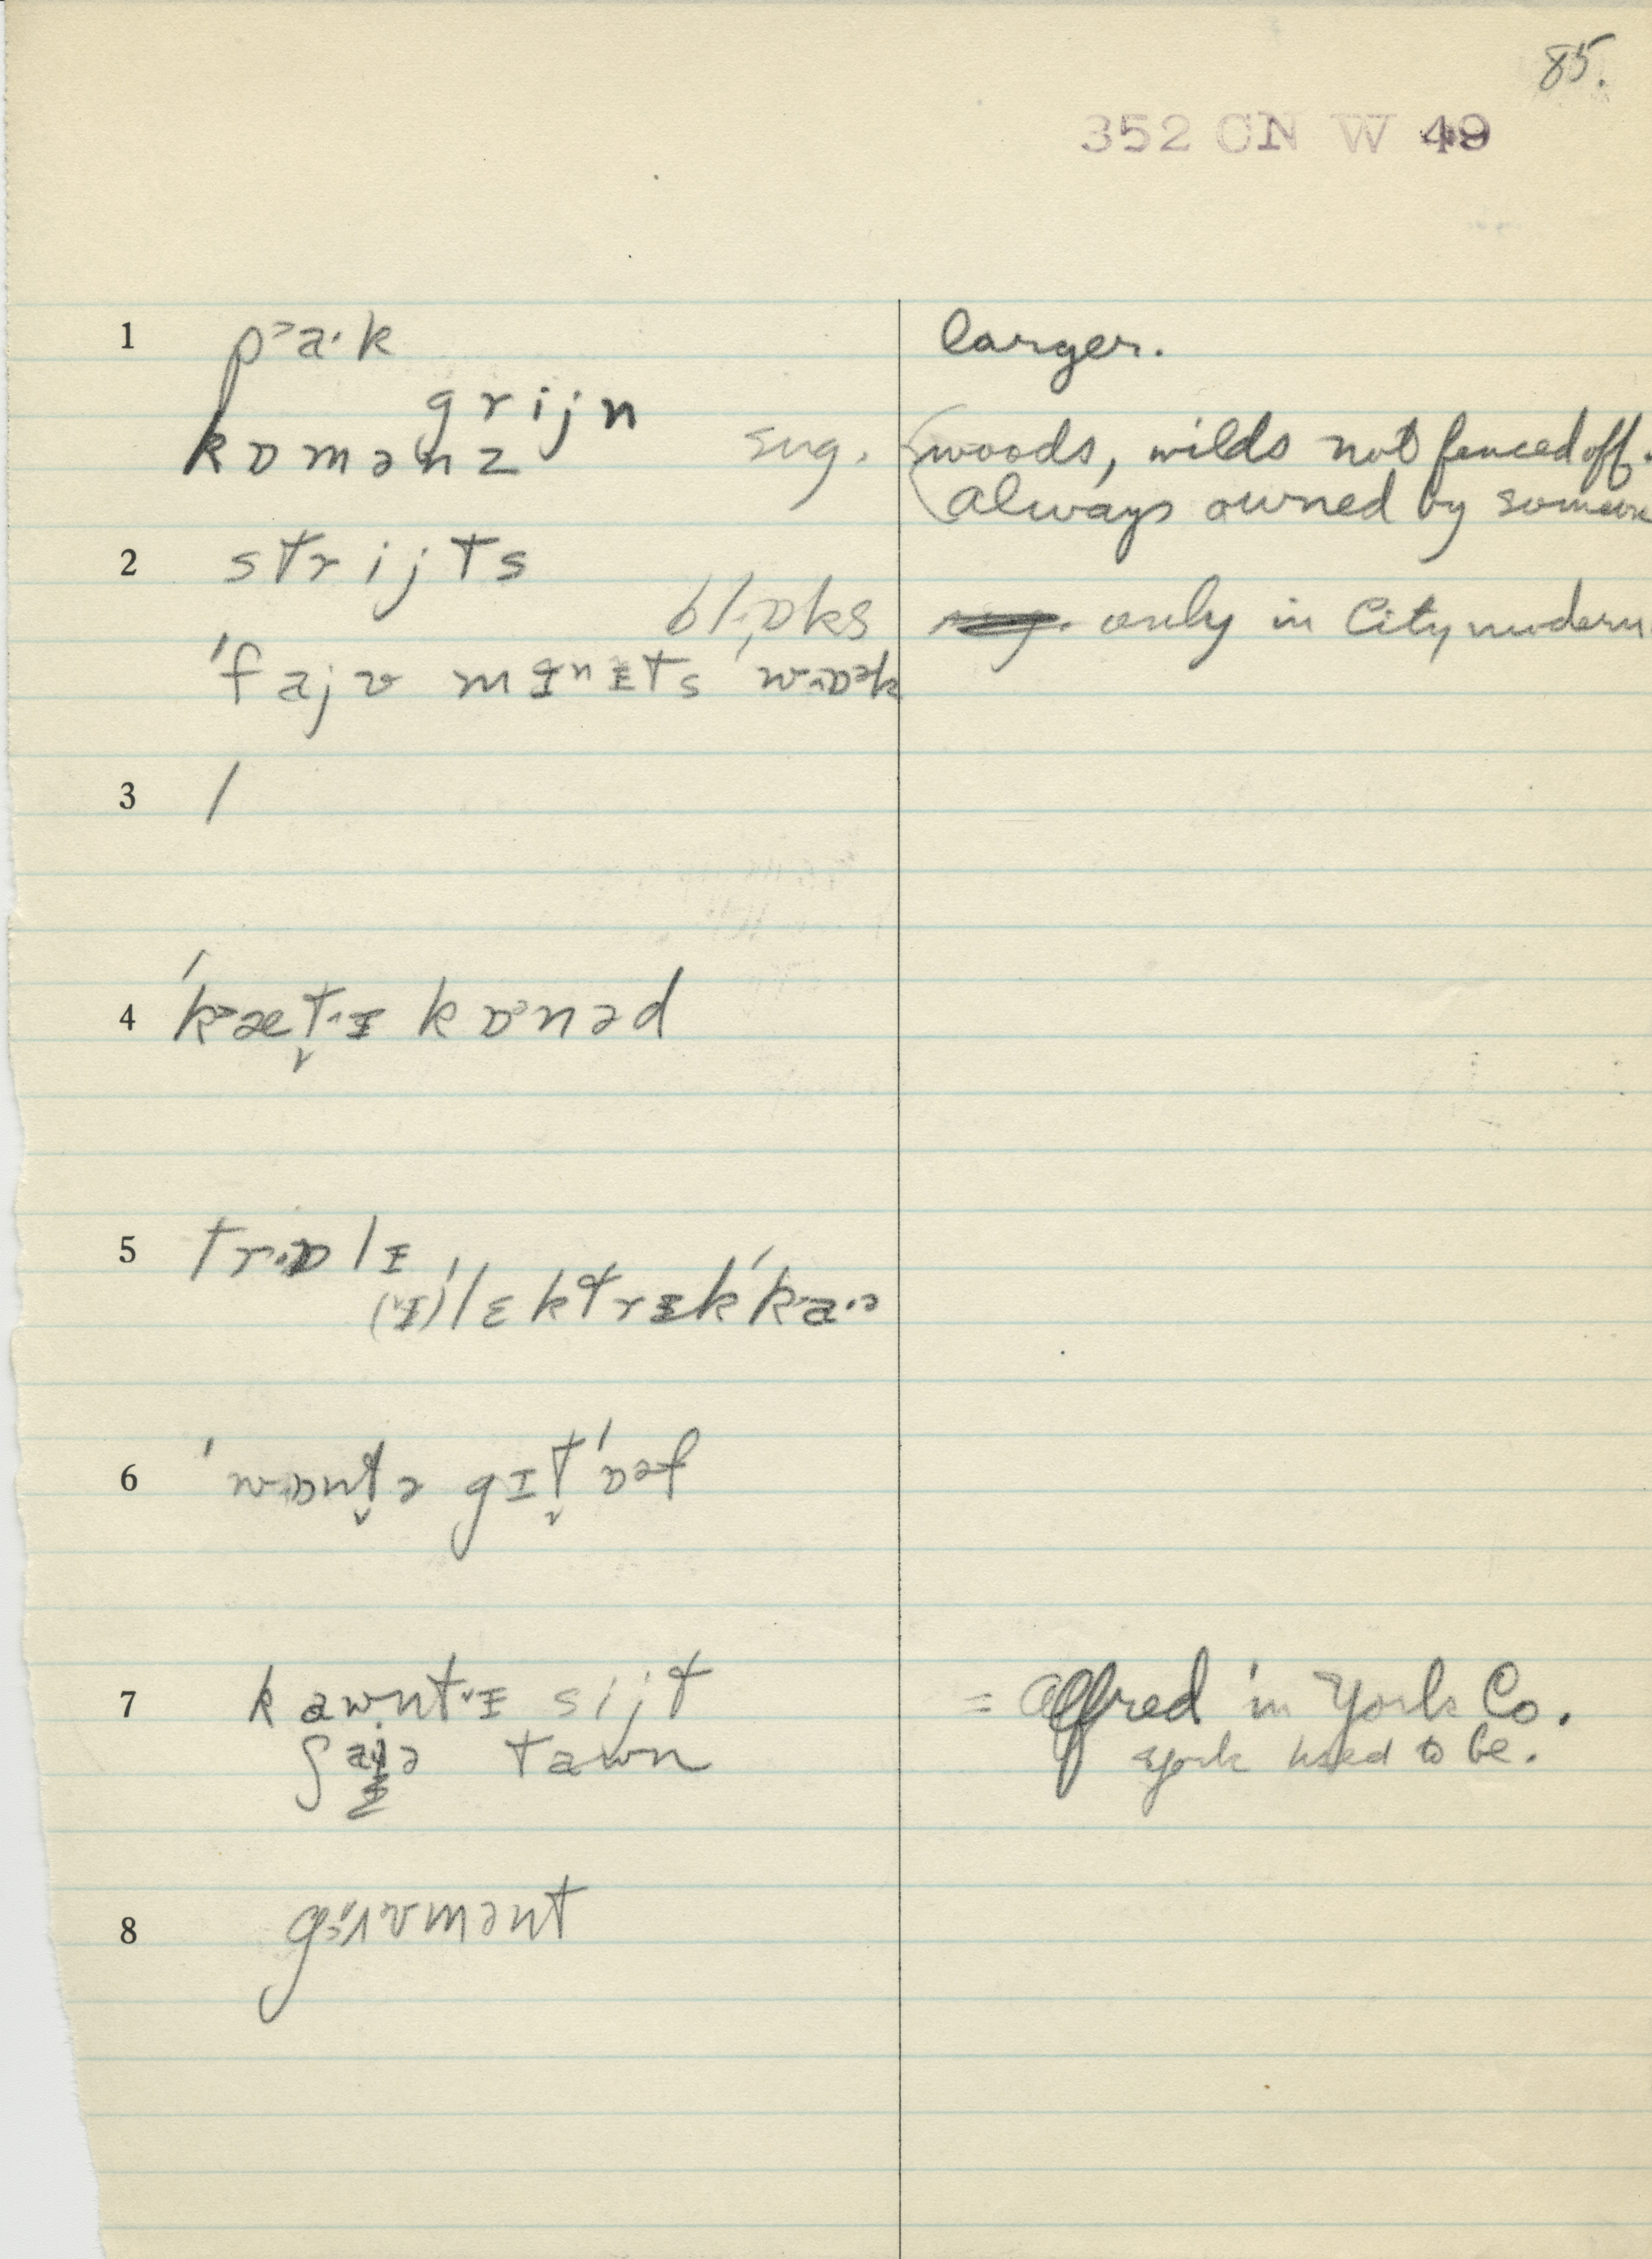 85.
352 CN W 49
1 p˃a·k larger.
grijn
kɒmənz sug. (woods, wilds not fenced off.
always owned by someone
2 strijts
bl·ɒks only in City modern.
ˈfajv mɪnɪts ˈwɒək
3 /
4 ˈk˃æt̬ɪ kɒnəd
5 trɒlɪ
(ɪ)ˈlɛktrɪkˈka·ə
6 ˈwɒnt̬ə gɪt̬ˈɒəf
7 kawntɪ sijt = Alfred in York Co.
ʃajə tawn York used to be.
8 gɜvmənt